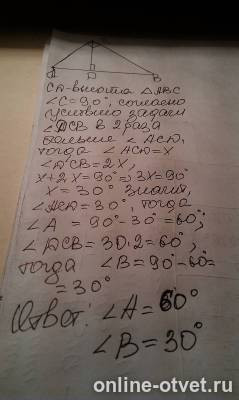 D
B
СД-высота △ABC
∠C=90°, согласно
условию задачи
∠DCB в 2 раза
больше ∠ACD,
тогда ∠ACD=x
∠DCB=2x,
x+2x=90°⇒3x=90°
x=30° значит,
∠ACD=30°, тогда
∠A = 90°-30°=60°,
∠DCB=30·2=60°,
тогда ∠B=90°-60=
=30°
Ответ: ∠A=60°
∠B=30°
online-otvet.ru